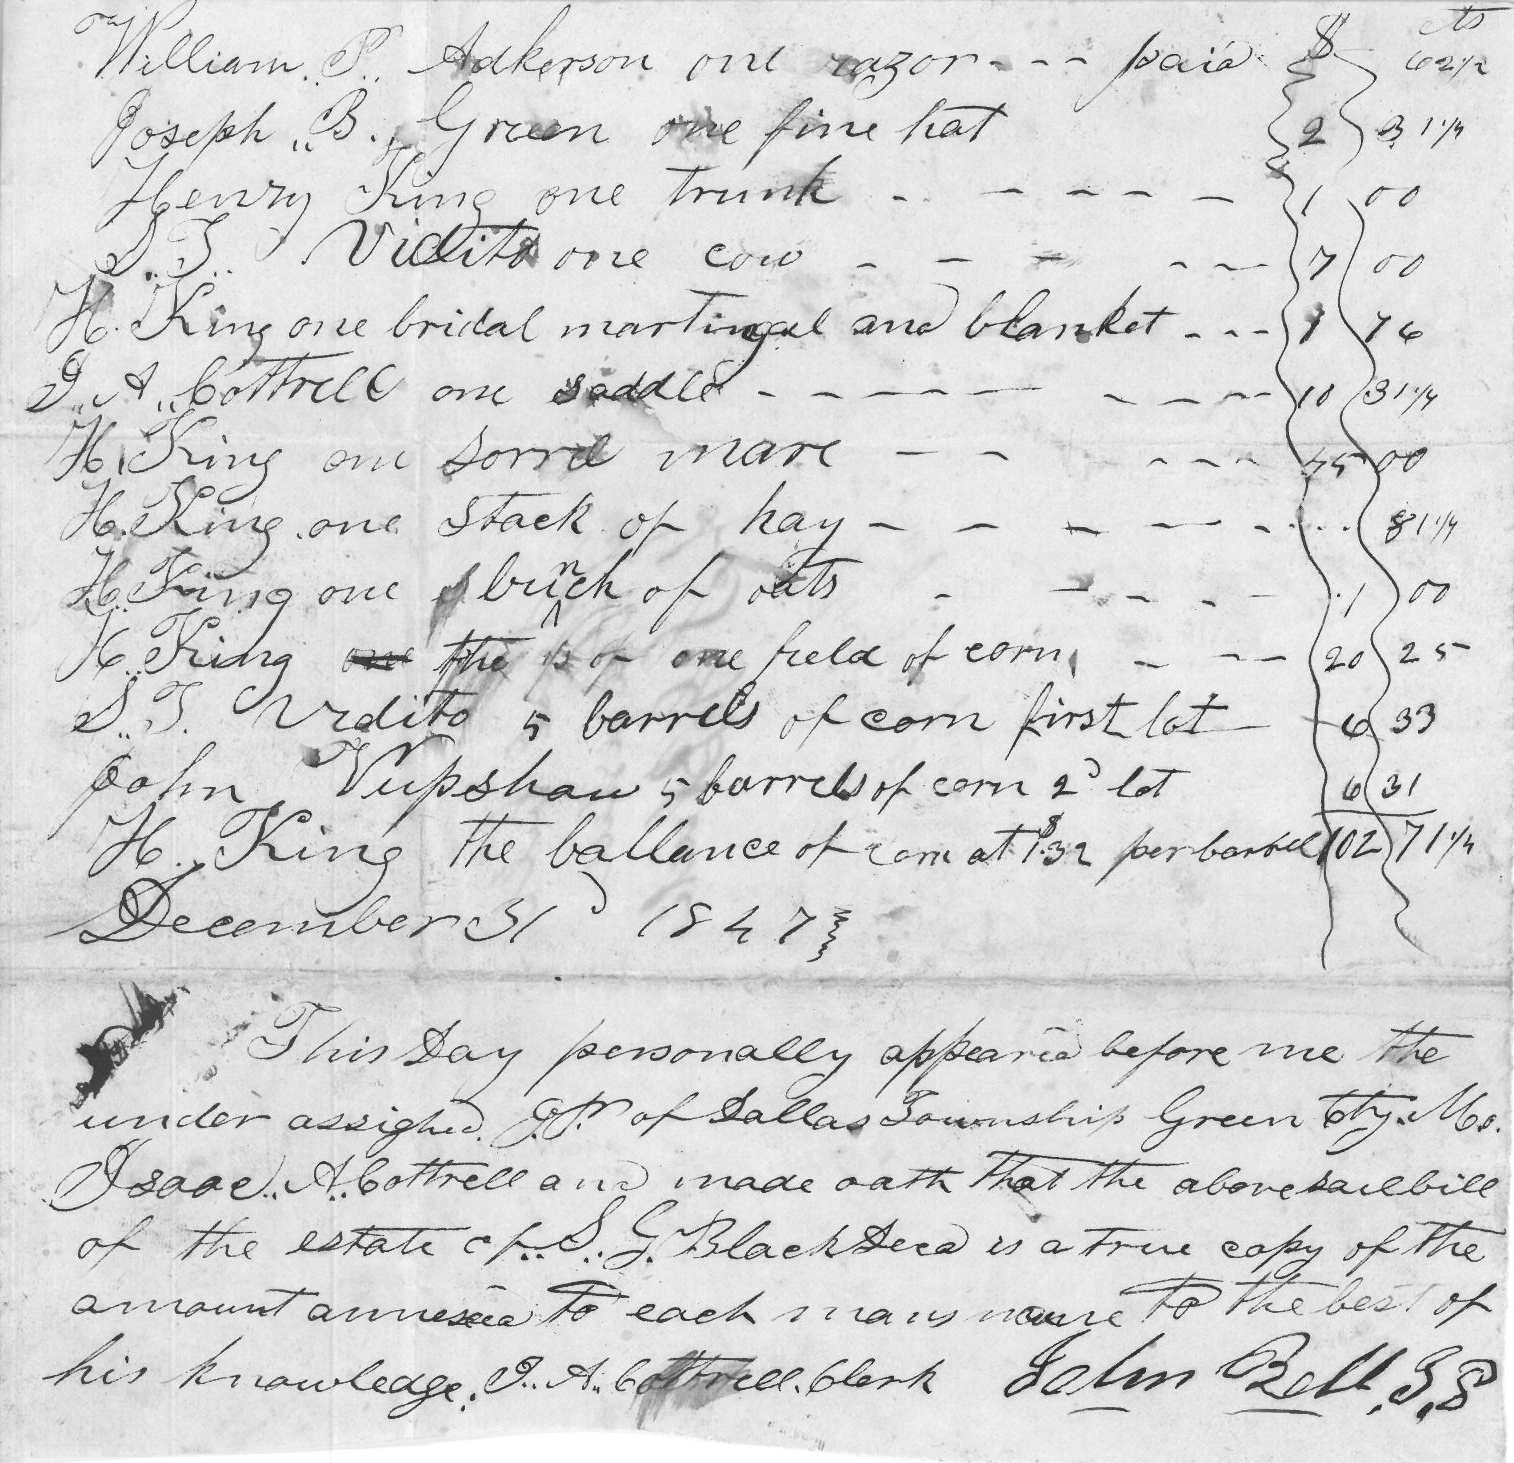 $ cts
William. P. Adkerson one razor - - - paid 62 1/2
Joseph B. Green one fine hat 2 31 1/4
Henry King one trunk - - - - - - 1 00
S. T. Vidito one cow - - - - - - 7 00
H. King one bridal martingal and blanket - - - 1 76
I. A. Cottrell one saddle - - - - - - - - - - 10 31 1/4
H. King one sorrel mare - - - - - - 45 00
H. King one stack of hay - - - - - - - - 81 1/4
H. King one bunch of oats - - - - - 1 00
H. King the of one field of corn, - - - - 20 25
S. T. Vidito 5 barrels of corn first lot 6 33
John Vupshaw 5 barrels of corn 2d lot 6 31
H. King the ballance of corn at $1.32 per barrel 102 71 1/4
December 31d 1847
This day personally appeared before me the
under assighed J.P. of Dallas Township Green Cty. Mo.
Isaac. A. Cottrell and made oath that the above sale bill
of the estate of S. G. Black Decd is a true copy of the
amount annexed to each mans name to the best of
his knowledge. I. A. Cottrell. Clerk John Bell, J,P